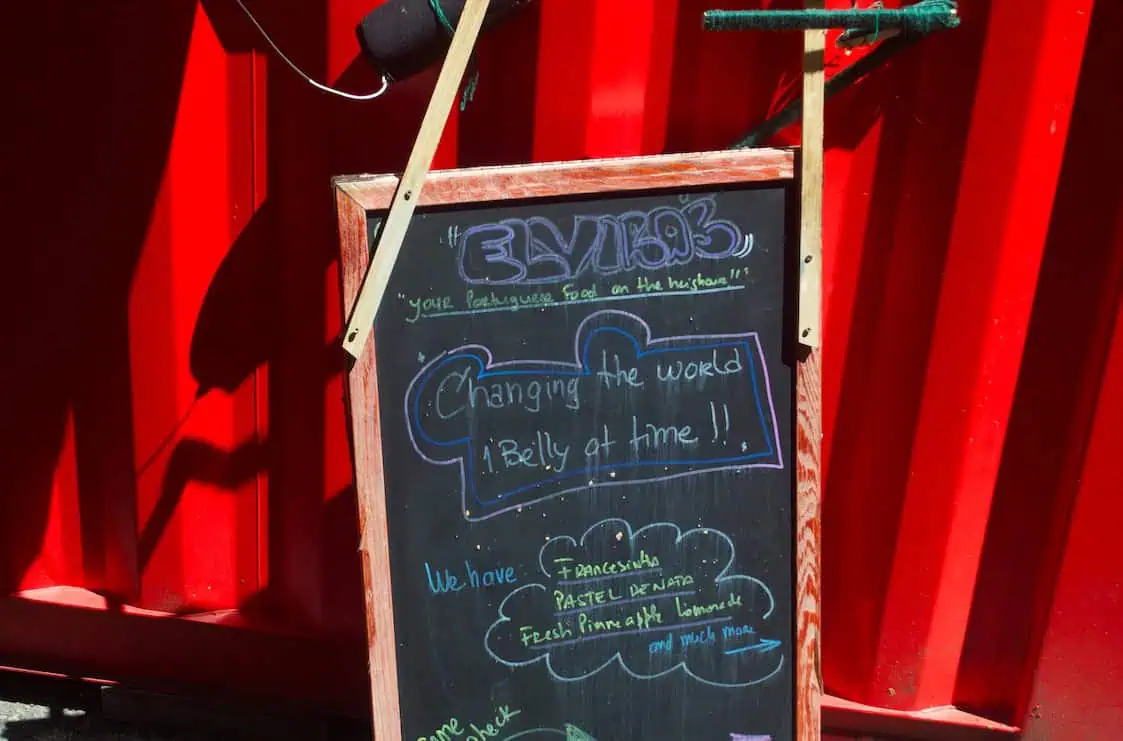 "ELVIRA'S"
"your Portuguese Food on the heighours!!"
Changing the world
1 Belly at time !!
We have
FRANCESINHA
PASTEL DE NATA
Fresh Pinneapple Lemonade
and much more
Come
check